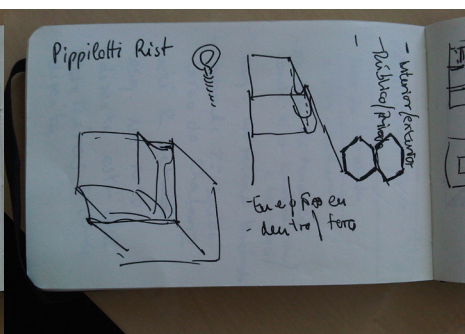 Pippilotti Rist
- Interior/exterior
- Público/privado
-
- dentro/fora